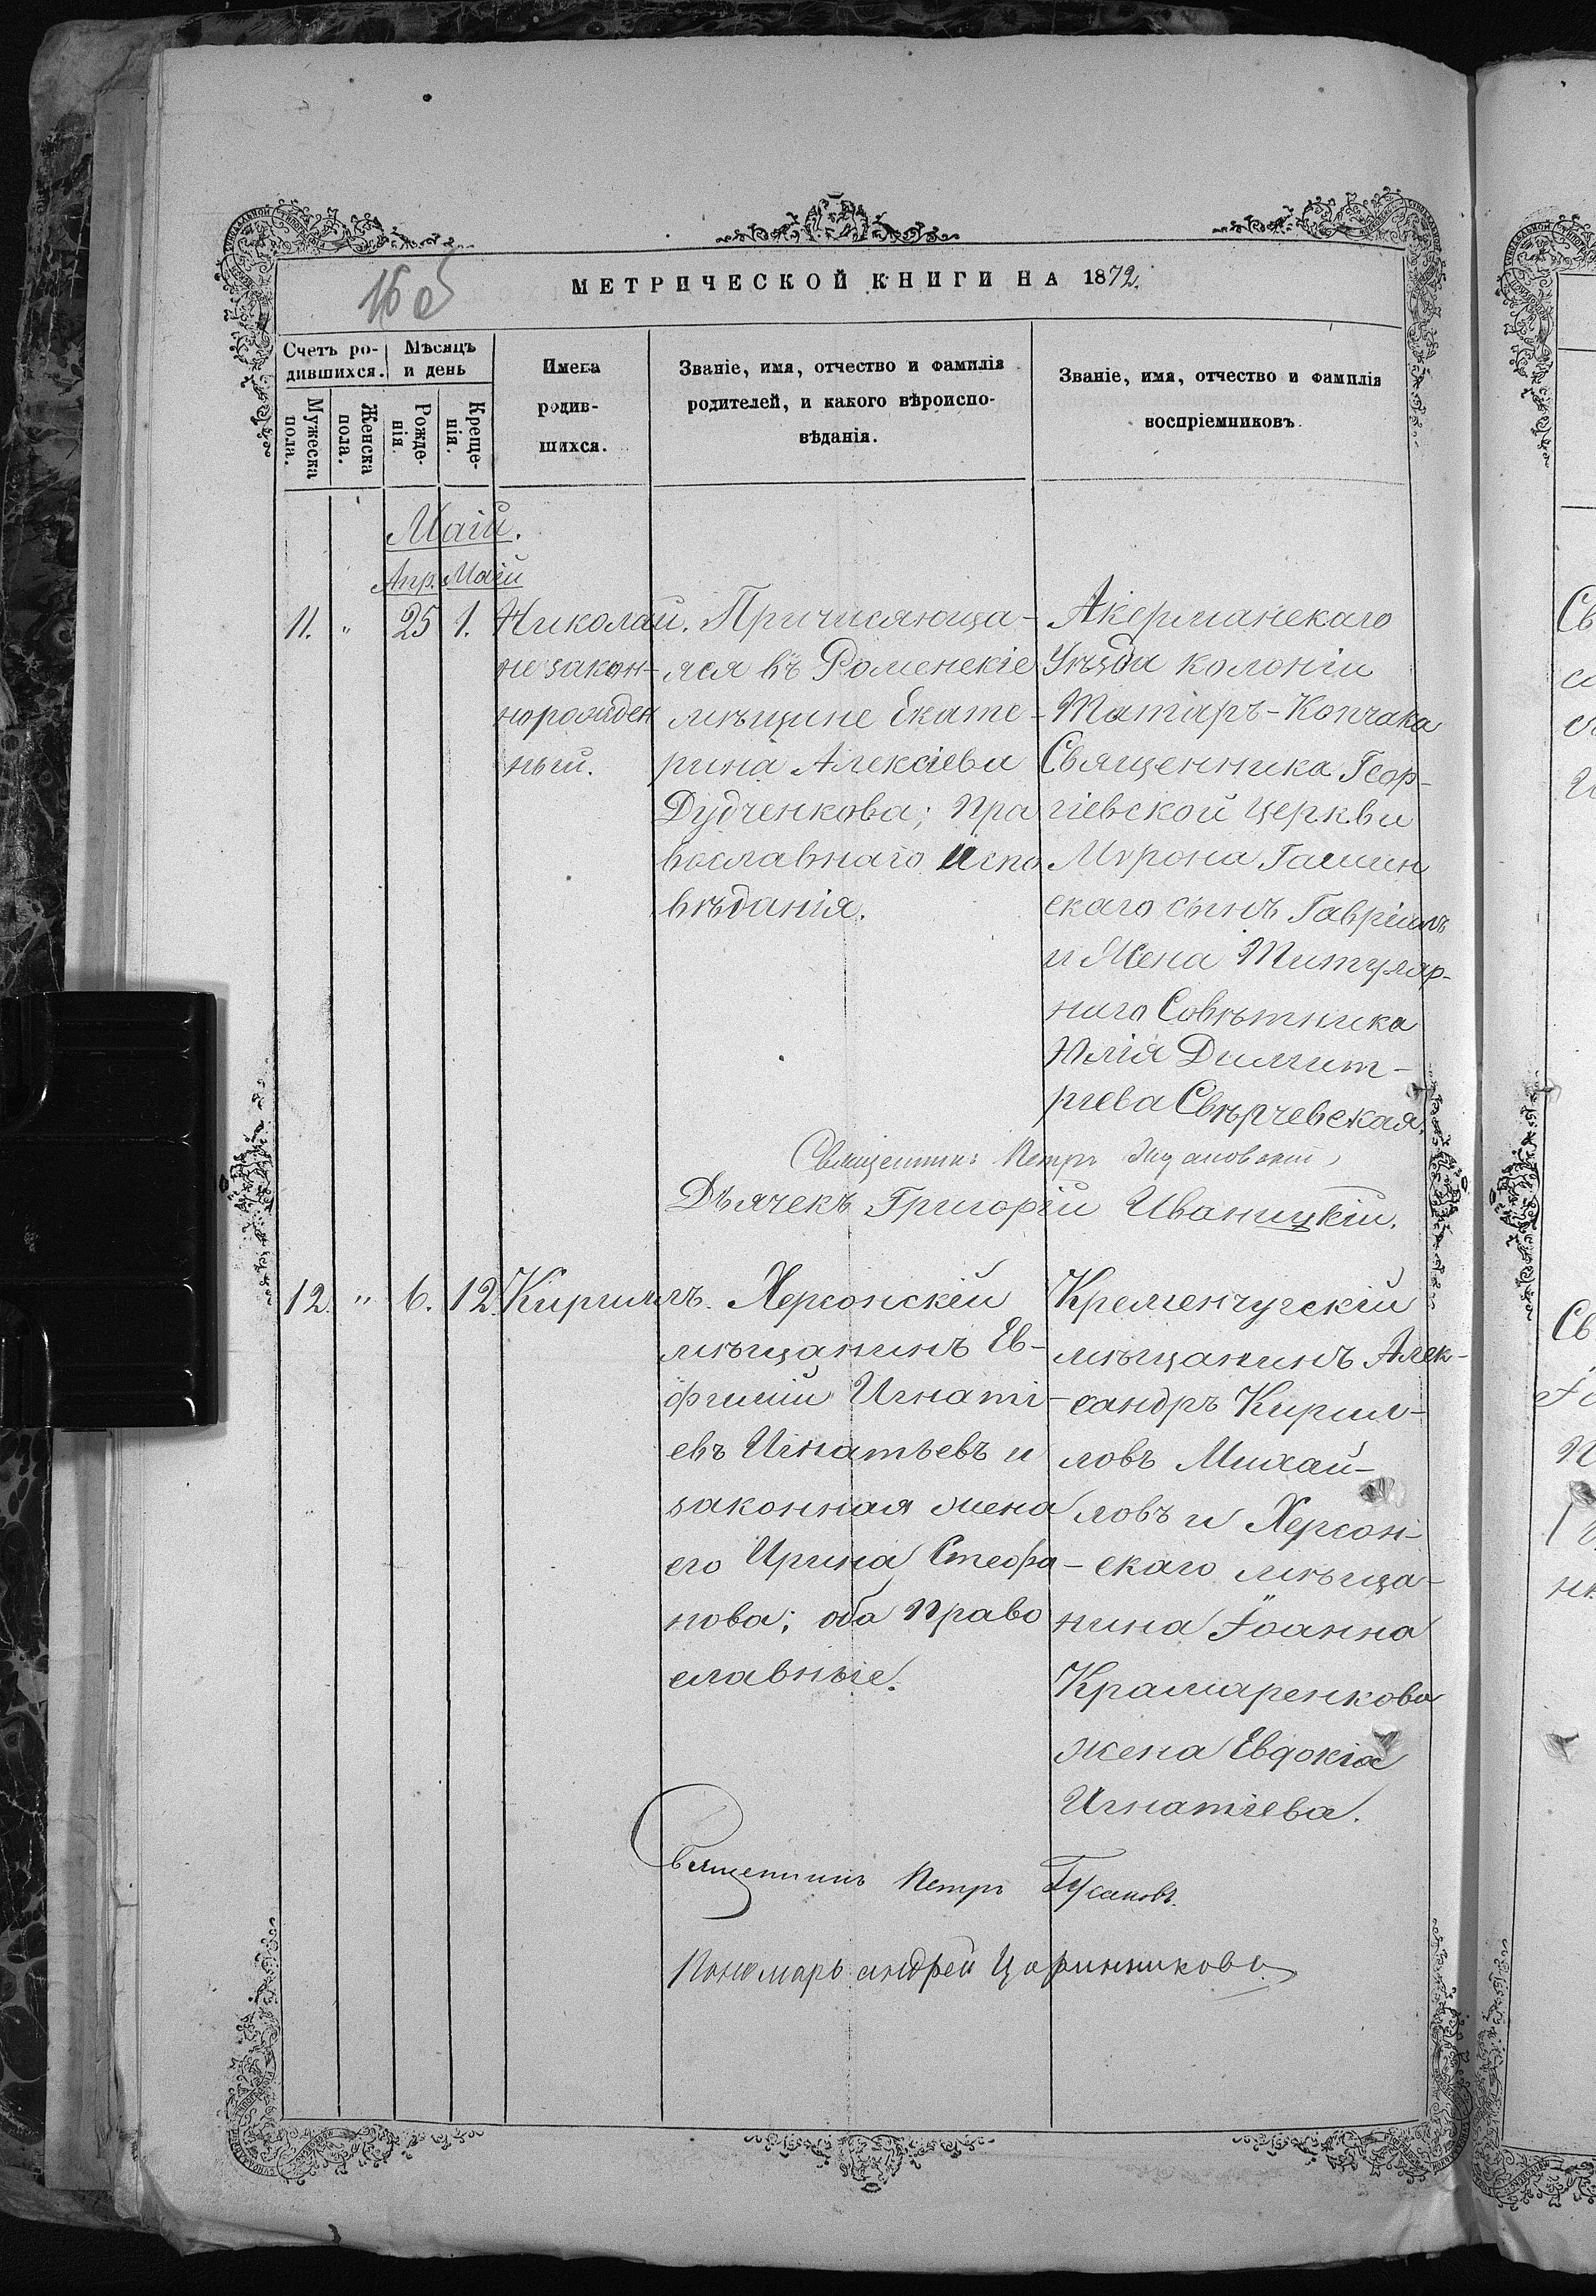 16 об
МЕТРИЧЕСКОЙ КНИГИ НА 1872.
Счетъ ро-
дившихся.
Мужеска
пола.
Женска
пола.
Мѣсяцъ
и день
Рожде-
нія.
Креще-
нія.
Имена
родив-
шихся.
Званіе, имя, отчество и фамилія
родителей, и какого вѣроиспо-
вѣданія.
Званіе, имя, отчество и фамилія
воспріемниковъ.
Маій.
Апр. Маій
11. " 25 1.
Николай.
незакон-
норожден
ный.
Причисляюща-
яся въ Роменскіе
мѣщане Екате-
рина Алексіева
Дудченкова; Пра
вославнаго Испо
вѣданія.
Акерманскаго
Уѣзда колоніи
Татаръ-Копчака
Священника Геор-
гіевской церкви
Мѵрона Гашин
скаго сынъ Гавріилъ
и Жена Титуляр-
наго Совѣтника
Юлія Димит-
ріева Свѣрчевская.
Священникъ Петръ
Дьячекъ Григорій Иваницкій.
12. " 6. 12.
Кириллъ.
Херсонскій
мѣщанинъ Ев-
фимій Игнаті-
евъ Игнатьевъ и
законная жена
его Ирина Стефа-
нова; оба Право
славные.
Кременчугскій
мѣщанинъ Алек-
сандръ Кирил-
ловъ Михай-
ловъ и Херсон-
скаго мѣща-
нина Іоанна
Крамаренкова
жена Евдокіа
Игнатіева.
Священникъ Петръ
Пономарь андрей Царинниковъ